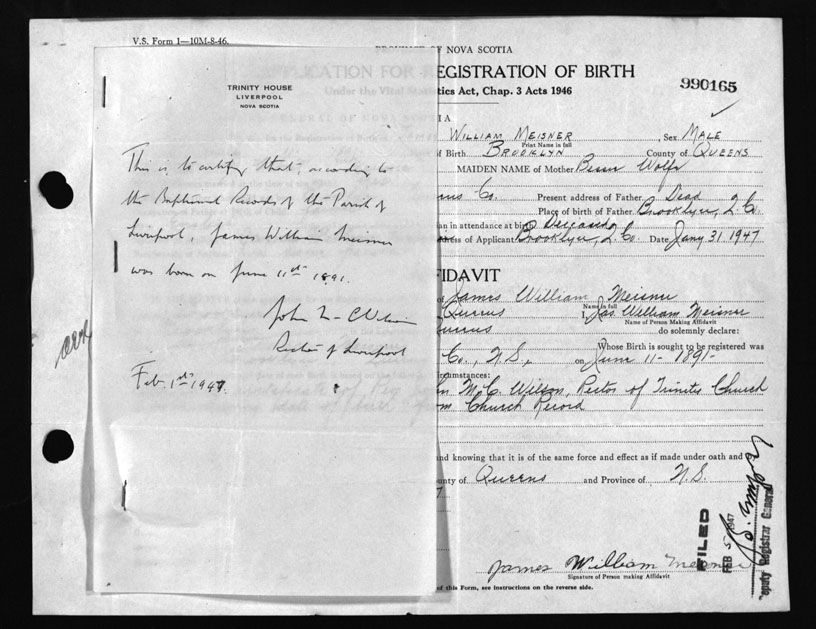 V.S. Form 1—10M-8-46.
PROVINCE OF NOVA SCOTIA
APPLICATION FOR REGISTRATION OF BIRTH
Under the Vital Statistics Act, Chap. 3 Acts 1946
990165
TRINITY HOUSE
LIVERPOOL
NOVA SCOTIA
This is to certify that, according to
the Baptismal Records of the Parish of
Liverpool, James William Meisner
was born on June 11th 1891.
John M C Wilson
Rector of Liverpool
Feb. 1st 1947.
WILLIAM MEISNER, Sex MALE
Print Name in full
of Birth BROOKLYN County of QUEENS
MAIDEN NAME of Mother Wolfe
Co. Present address of Father Dead
Place of birth of Father Brooklyn, Q Co.
an in attendance at birth Deceased
ess of Applicant Brooklyn, Q Co. Date Jany 31 1947
FIDAVIT
of James William Meisner
Name in full
Queens I, Jas. William Meisner
Name of Person Making Affidavit
Queens do solemnly declare:
Whose Birth is sought to be registered was
Co., N.S., on June 11 - 1891 -
circumstances:
hn M. C. Wilson, Rector of Trinity Church
om Church Record
and knowing that it is of the same force and effect as if made under oath and
ounty of Queens and Province of N.S.
7
FILED
FEB 5 1947
Deputy Registrar General
James William Meisner
Signature of Person making Affidavit
of this Form, see instructions on the reverse side.